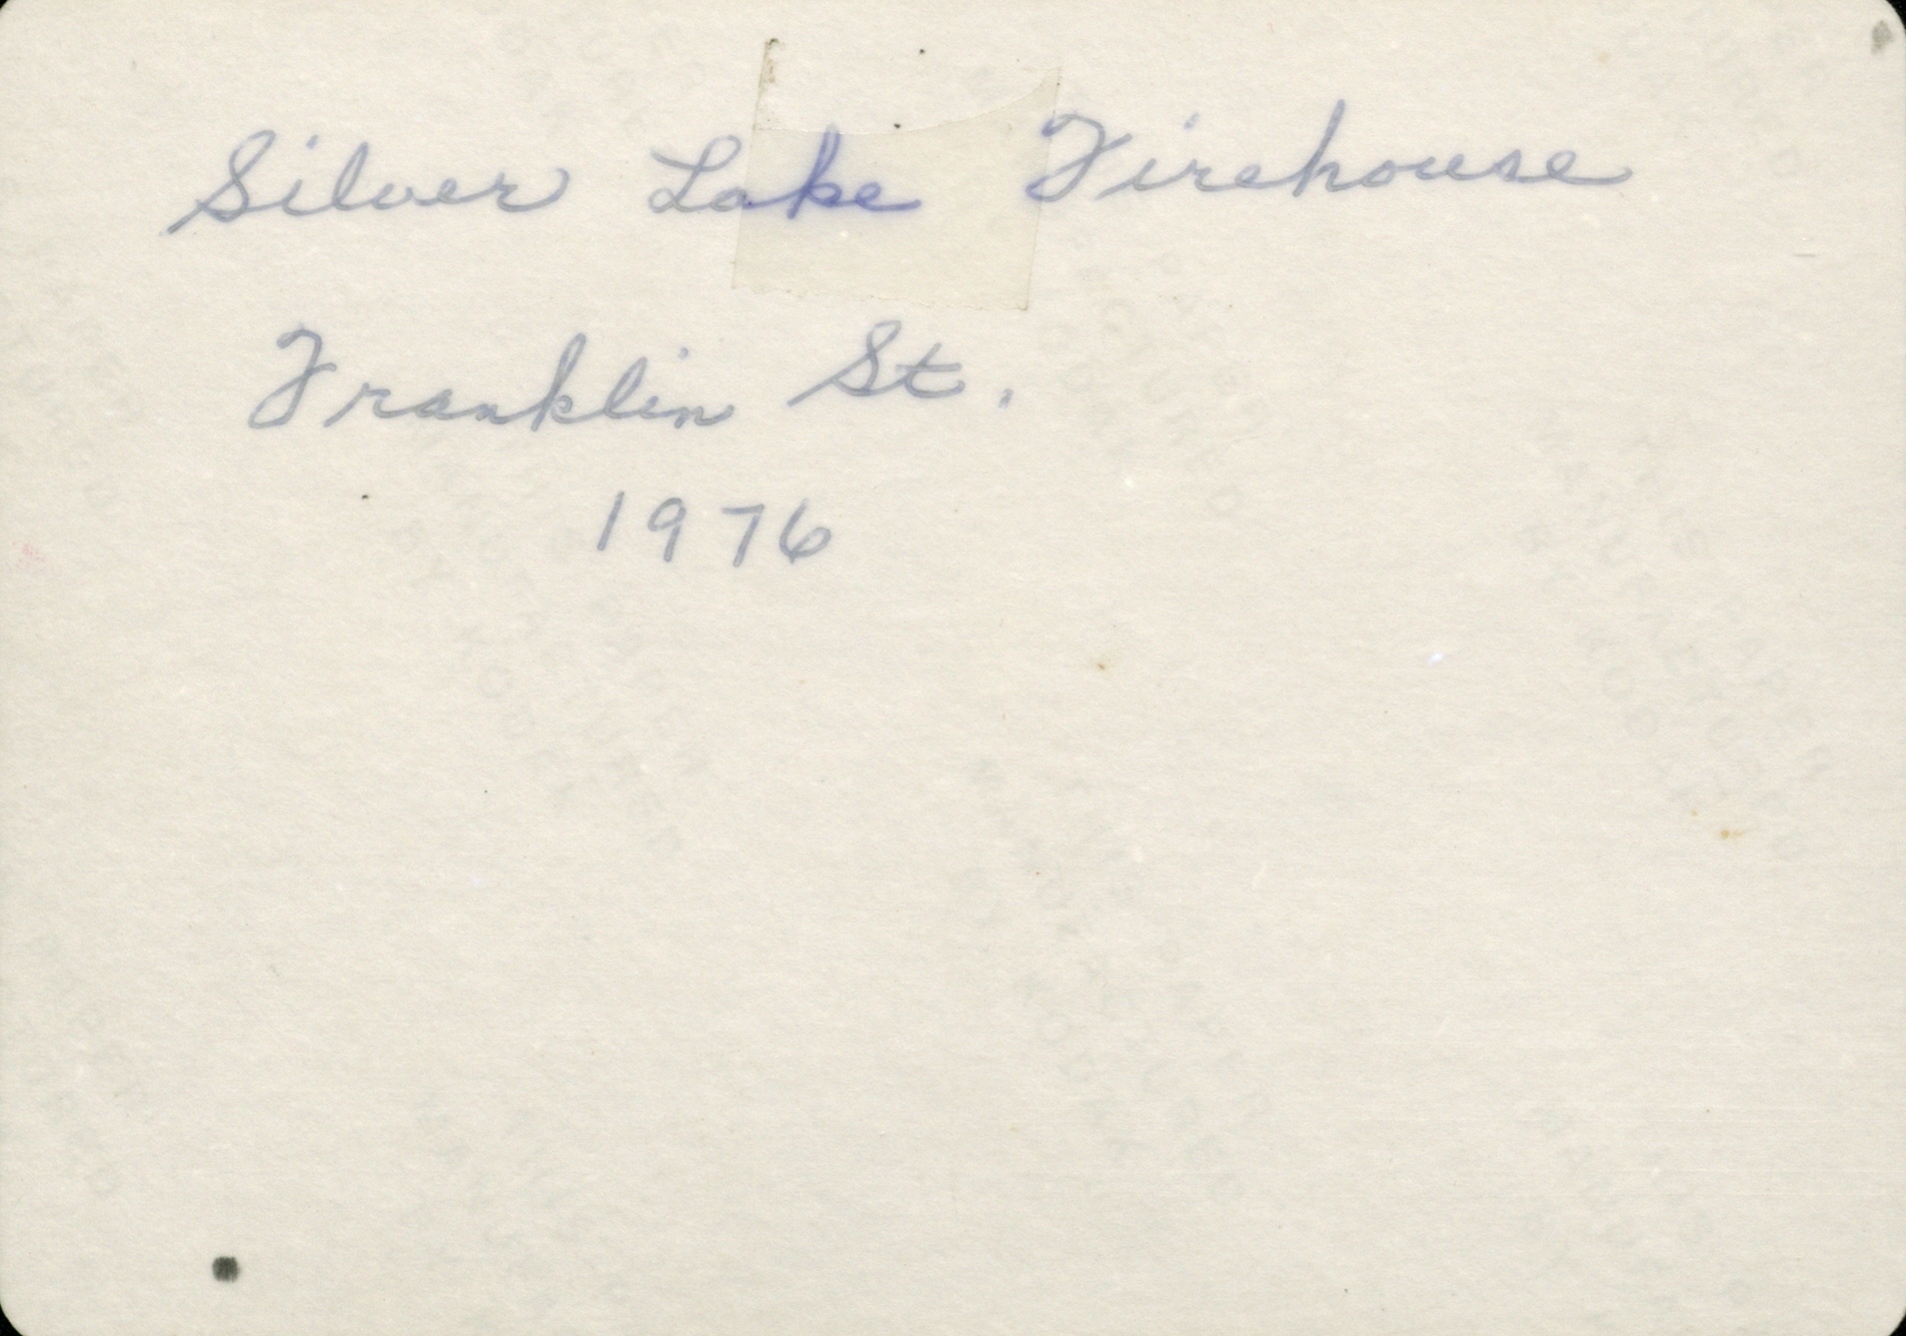 Silver Lake Firehouse
Franklin St.
1976